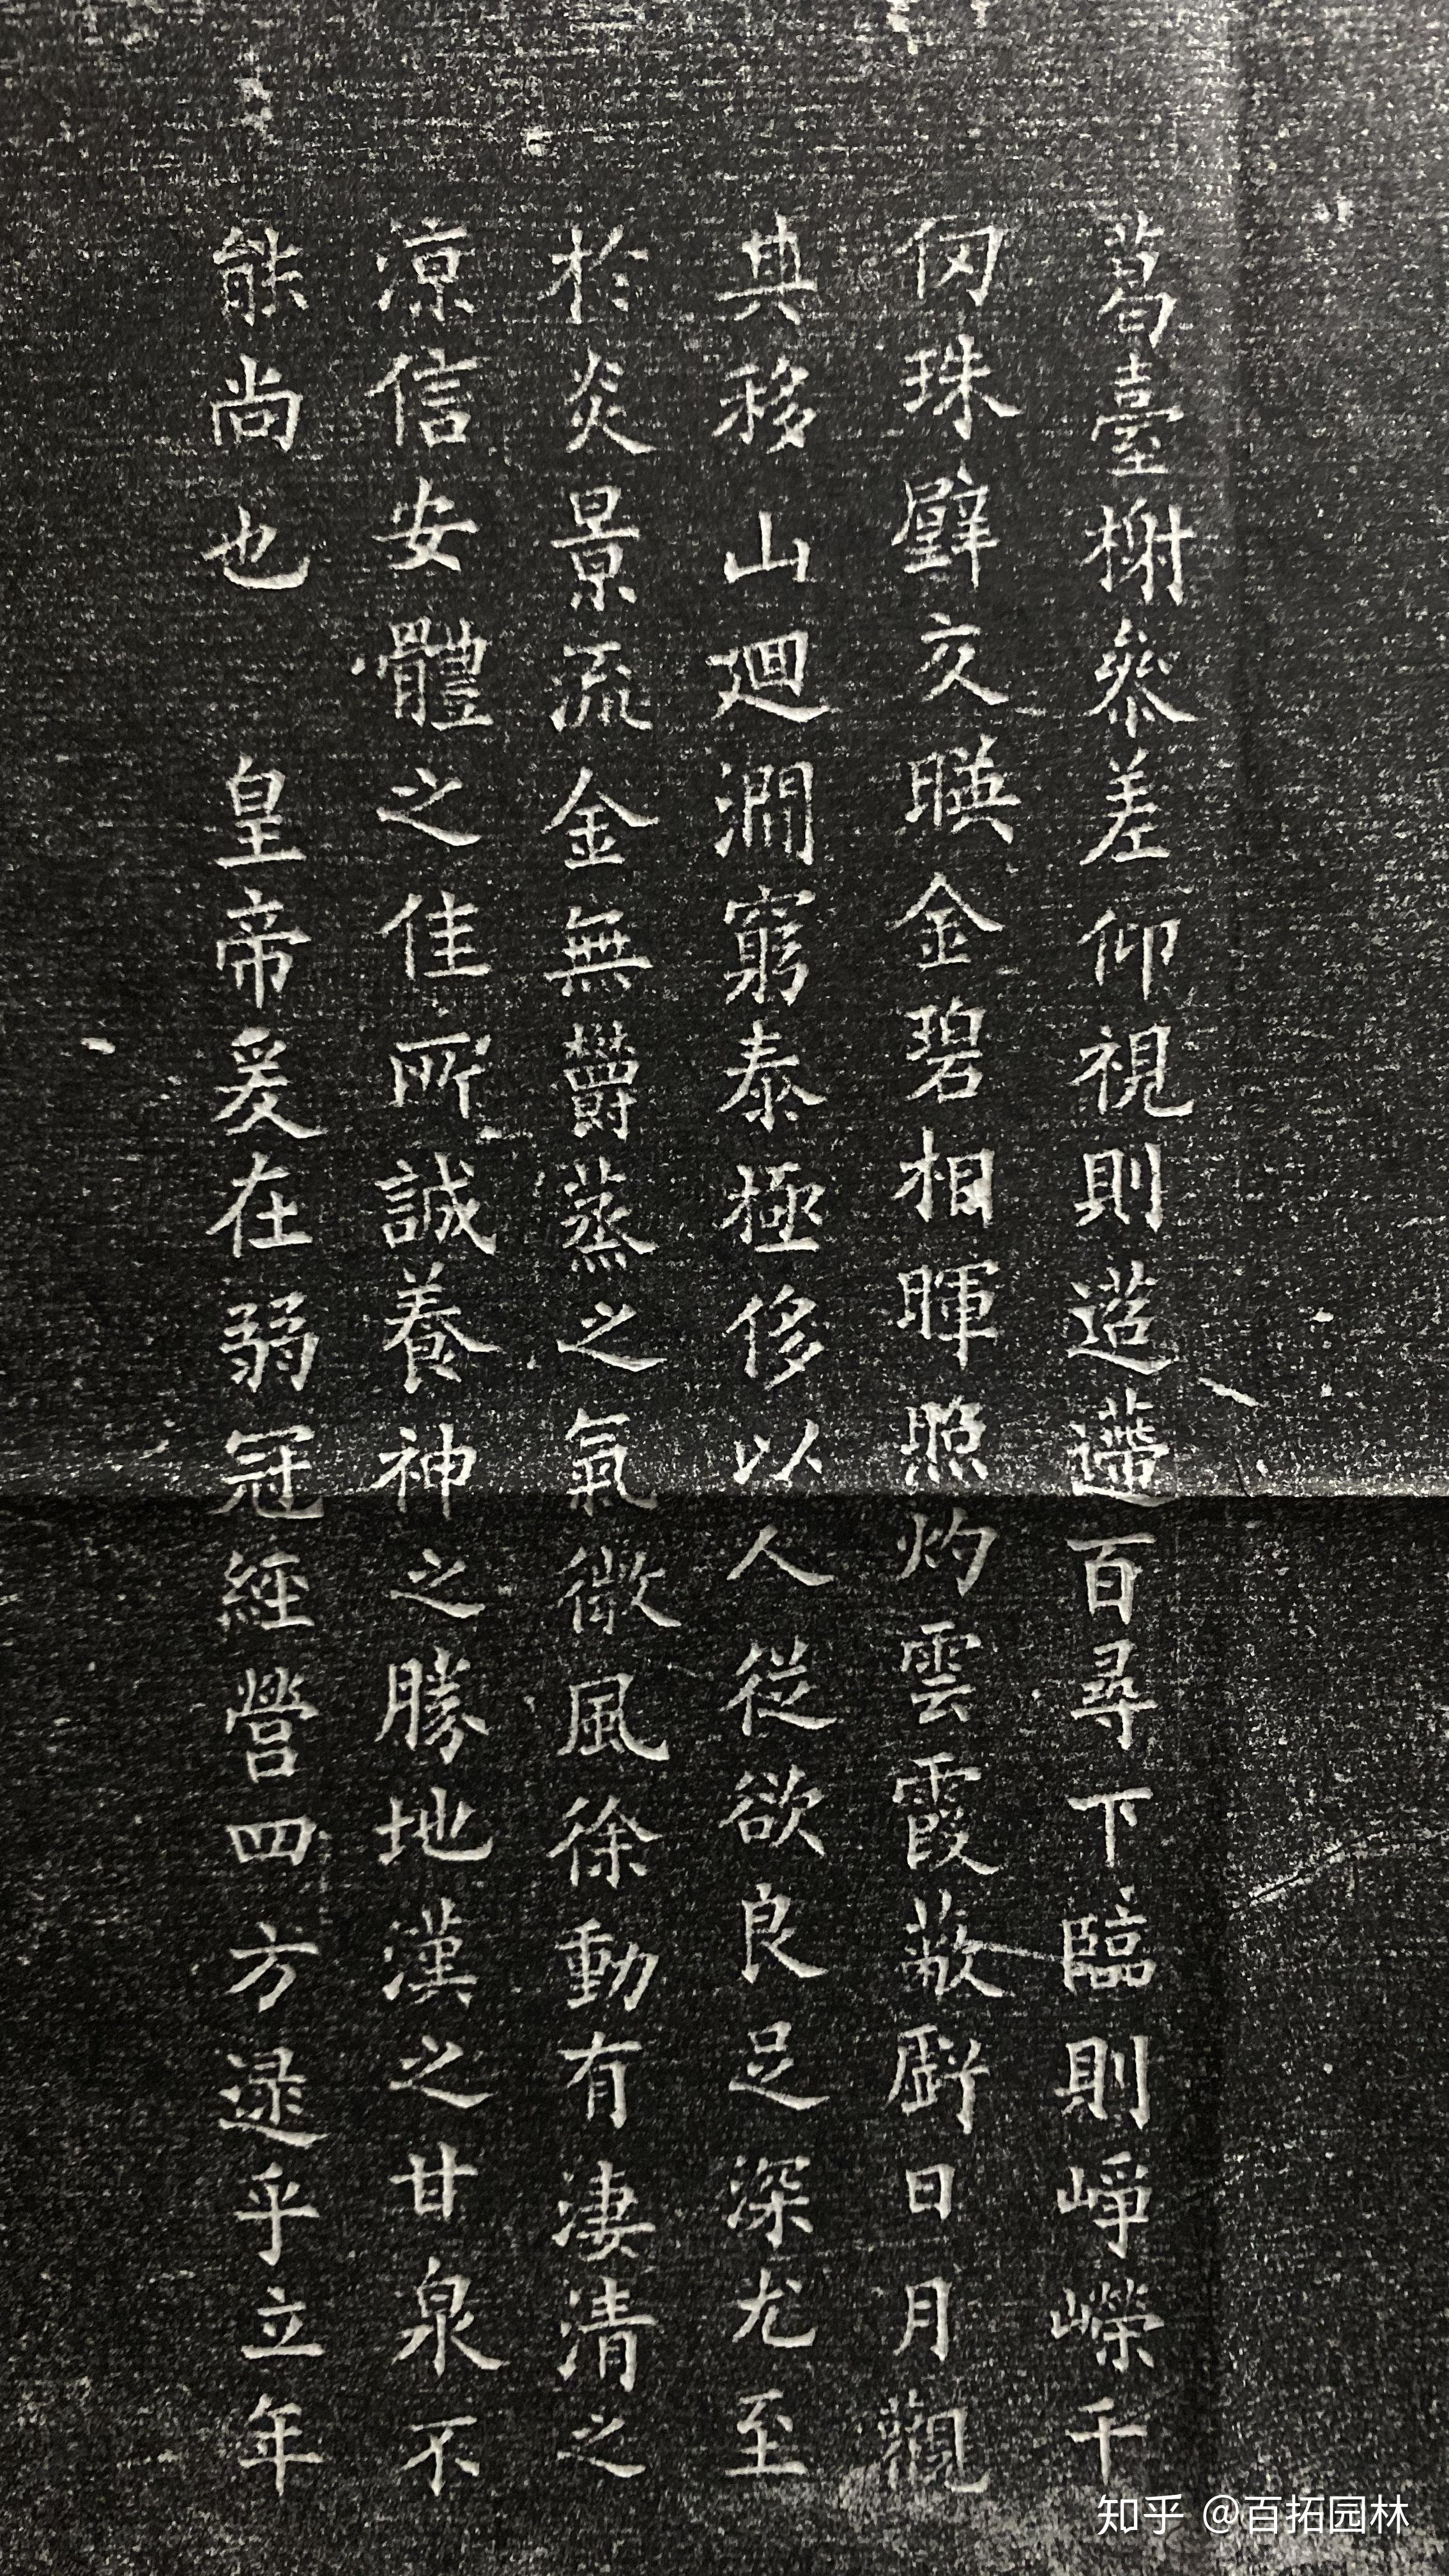 葛臺榭參差仰視則迢遰百尋下臨則崢嶸千
仞珠璧交暎金碧相暉照灼雲霞蔽虧日月觀
其移山迴澗窮泰極侈以人從欲良足深尤至
於炎景流金無鬱蒸之氣微風徐動有淒清之
凉信安體之佳所誠養神之勝地漢之甘泉不
能尚也 皇帝爰在弱冠經營四方逯乎立年
知乎 @百拓园林